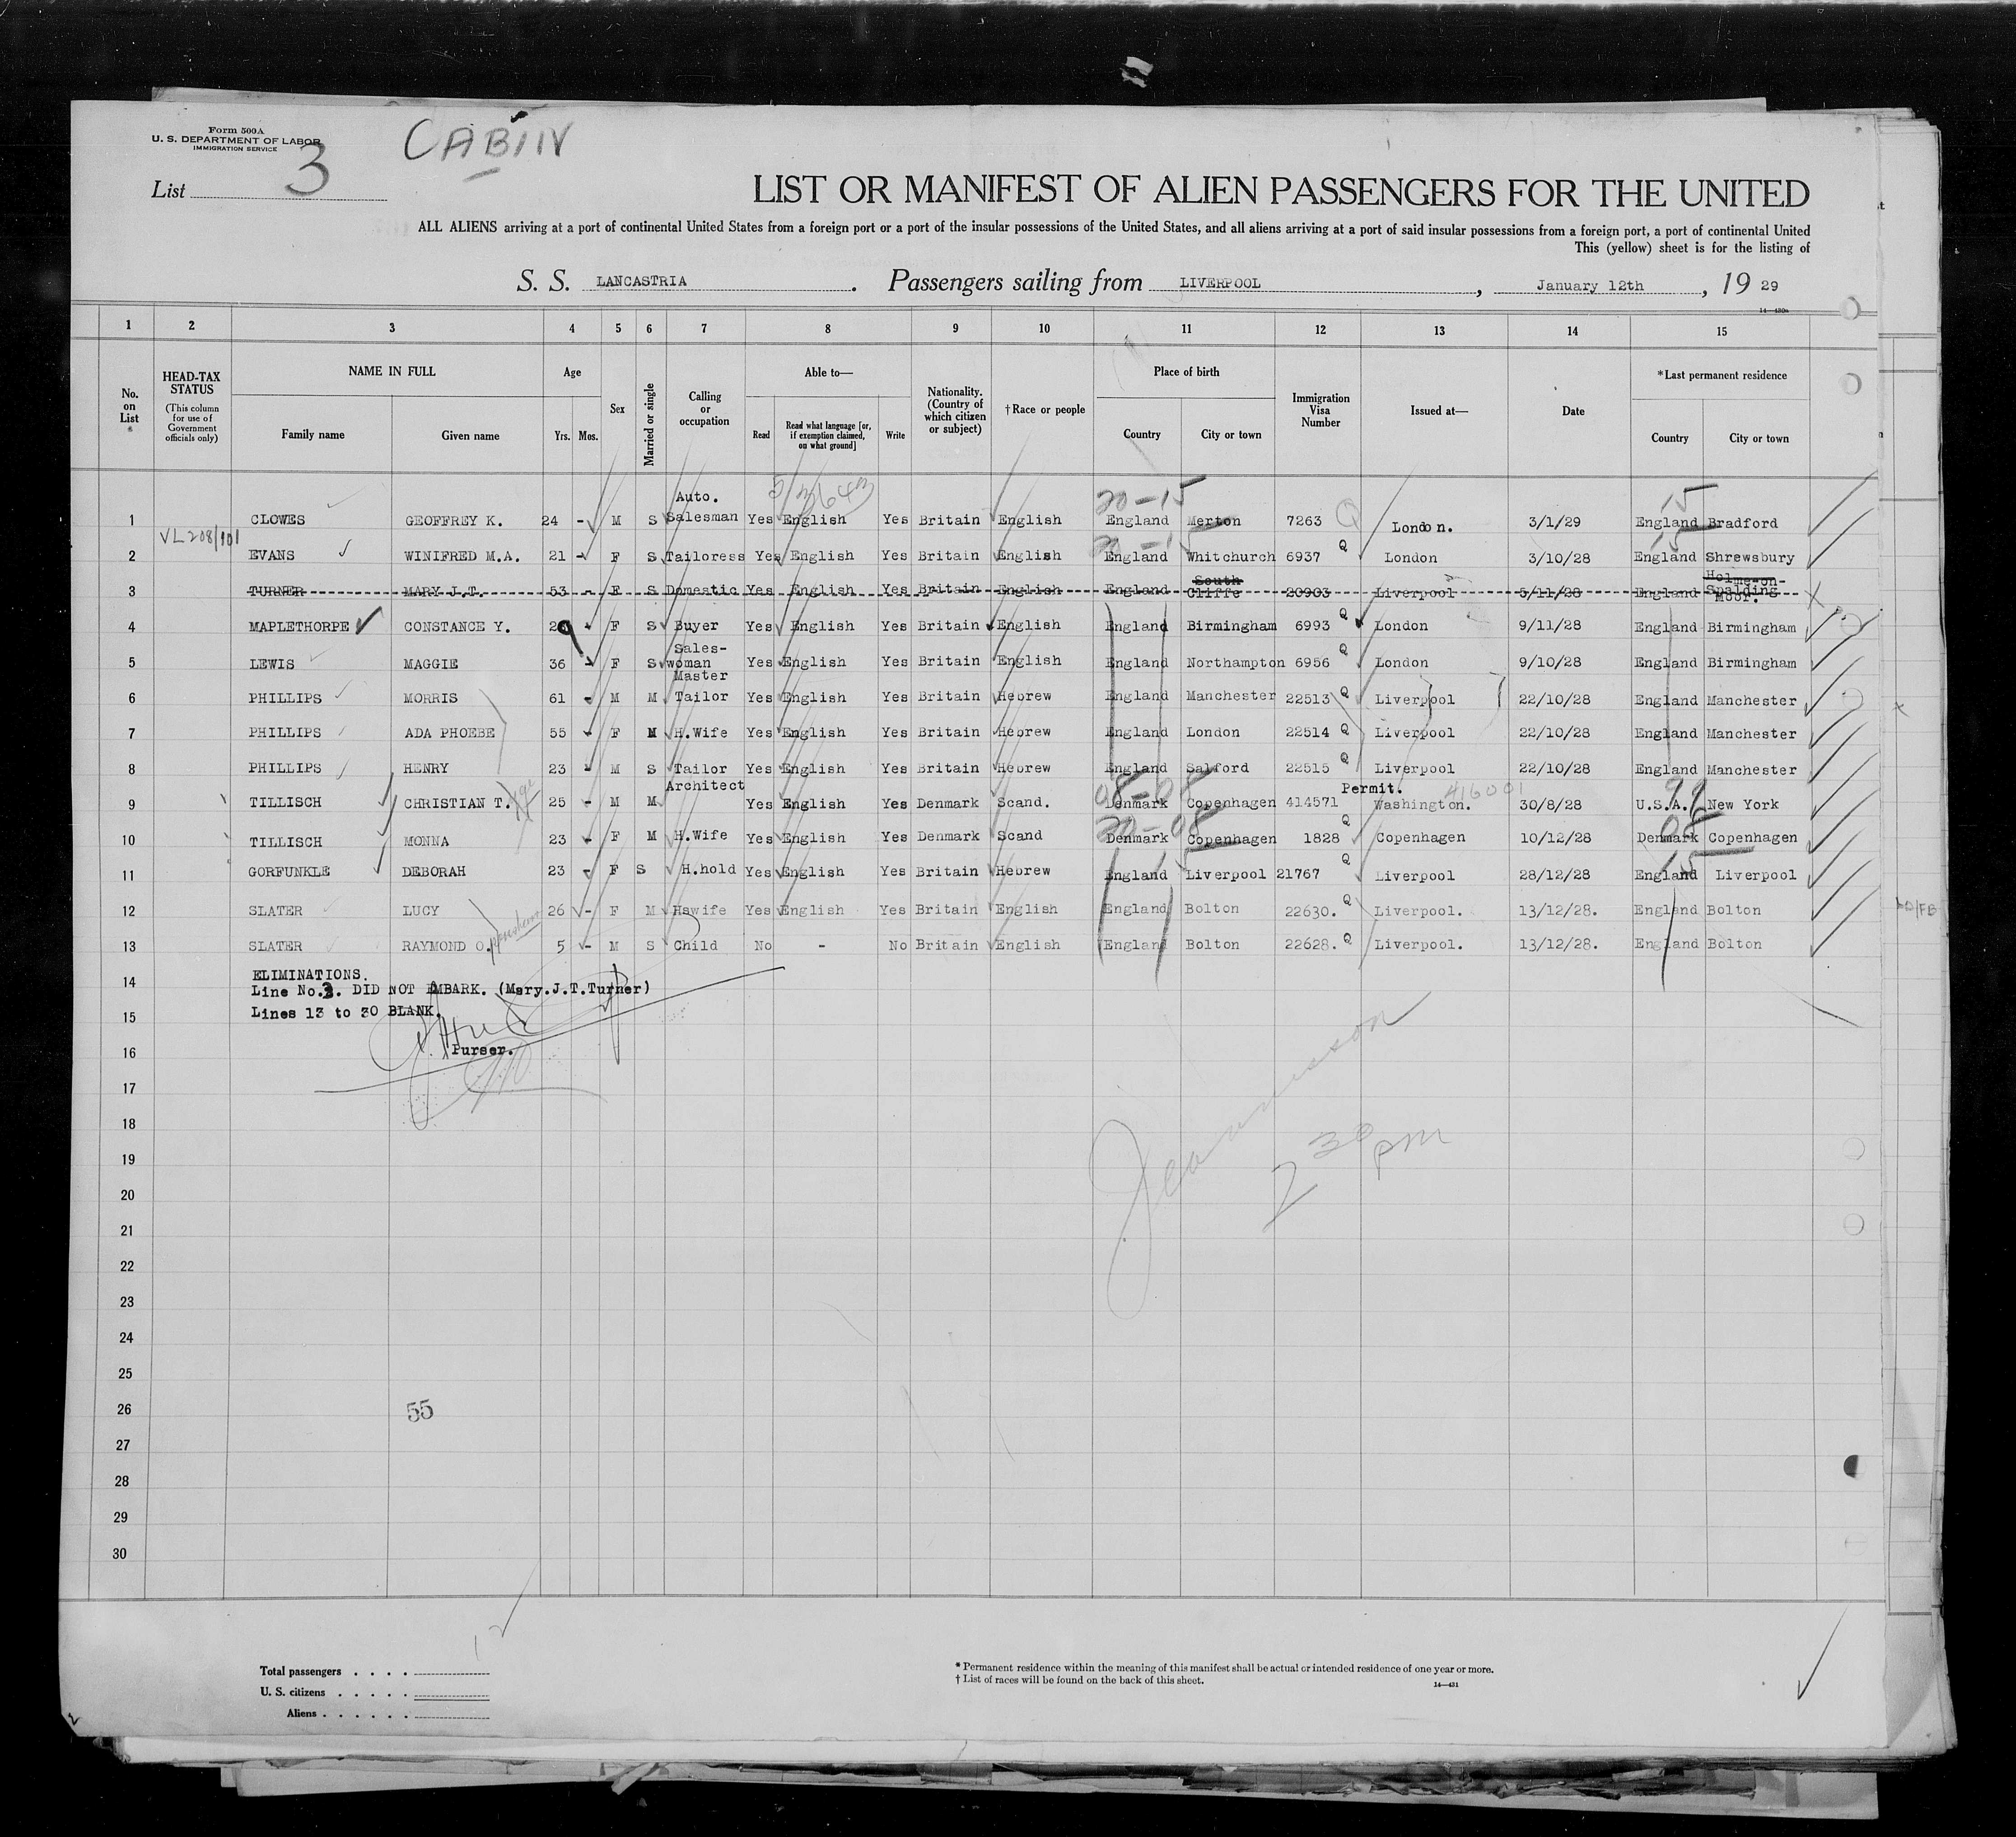 Form 500A
U. S. DEPARTMENT OF LABOR
IMMIGRATION SERVICE
CABIN
List 3
LIST OR MANIFEST OF ALIEN PASSENGERS FOR THE UNITED
ALL ALIENS arriving at a port of continental United States from a foreign port or a port of the insular possessions of the United States, and all aliens arriving at a port of said insular possessions from a foreign port, a port of continental United
This (yellow) sheet is for the listing of
S. S. LANCASTRIA. Passengers sailing from LIVERPOOL, January 12th, 19 29
14—430a
1 2 3 4 5 6 7 8 9 10 11 12 13 14 15
No. on List
HEAD-TAX STATUS (This column for use of Government officials only)
NAME IN FULL Family name Given name
Age Yrs. Mos.
Sex
Married or single
Calling or occupation
Able to— Read Read what language [or, if exemption claimed, on what ground] Write
Nationality. (Country of which citizen or subject)
†Race or people
Place of birth Country City or town
Immigration Visa Number
Issued at—
Date
*Last permanent residence Country City or town
20-15 15
1 CLOWES GEOFFREY K. 24 - M S Auto. Salesman Yes English Yes Britain English England Merton 7263 Q London. 3/1/29 England Bradford
VL208/101
20-15 15
2 EVANS WINIFRED M.A. 21 - F S Tailoress Yes English Yes Britain English England Whitchurch 6937 Q London 3/10/28 England Shrewsbury
3 TURNER MARY J.T. 53 - F S Domestic Yes English Yes Britain English England South Cliffe 20903 Liverpool 5/11/28 England Holme-on-Spalding Moor.
4 MAPLETHORPE CONSTANCE Y. 29 - F S Buyer Yes English Yes Britain English England Birmingham 6993 Q London 9/11/28 England Birmingham
5 LEWIS MAGGIE 36 - F S Sales-woman Yes English Yes Britain English England Northampton 6956 Q London 9/10/28 England Birmingham
6 PHILLIPS MORRIS 61 - M M Master Tailor Yes English Yes Britain Hebrew England Manchester 22513 Q Liverpool 22/10/28 England Manchester
7 PHILLIPS ADA PHOEBE 55 - F M H.Wife Yes English Yes Britain Hebrew England London 22514 Q Liverpool 22/10/28 England Manchester
8 PHILLIPS HENRY 23 - M S Tailor Yes English Yes Britain Hebrew England Salford 22515 Q Liverpool 22/10/28 England Manchester
08-08 Permit. 416001 99
9 TILLISCH CHRISTIAN T. 25 - M M Architect Yes English Yes Denmark Scand. Denmark Copenhagen 414571 Washington. 30/8/28 U.S.A. New York
20-08 08
10 TILLISCH MONNA 23 - F M H.Wife Yes English Yes Denmark Scand Denmark Copenhagen 1828 Q Copenhagen 10/12/28 Denmark Copenhagen
15 15
11 GORFUNKLE DEBORAH 23 - F S H.hold Yes English Yes Britain Hebrew England Liverpool 21767 Q Liverpool 28/12/28 England Liverpool
12 SLATER LUCY 26 - F M Hswife Yes English Yes Britain English England Bolton 22630. Q Liverpool. 13/12/28. England Bolton
13 SLATER RAYMOND O. 5 - M S Child No - No Britain English England Bolton 22628. Q Liverpool. 13/12/28. England Bolton
14 ELIMINATIONS.
Line No.3. DID NOT EMBARK. (Mary.J.T.Turner)
15 Lines 13 to 30 BLANK.
16 Purser.
17
18
2 30 pm
19
20
21
22
23
24
25
26 55
27
28
29
30
12
Total passengers . . . .
U. S. citizens . . . . .
Aliens . . . . . .
* Permanent residence within the meaning of this manifest shall be actual or intended residence of one year or more.
† List of races will be found on the back of this sheet.
14—431